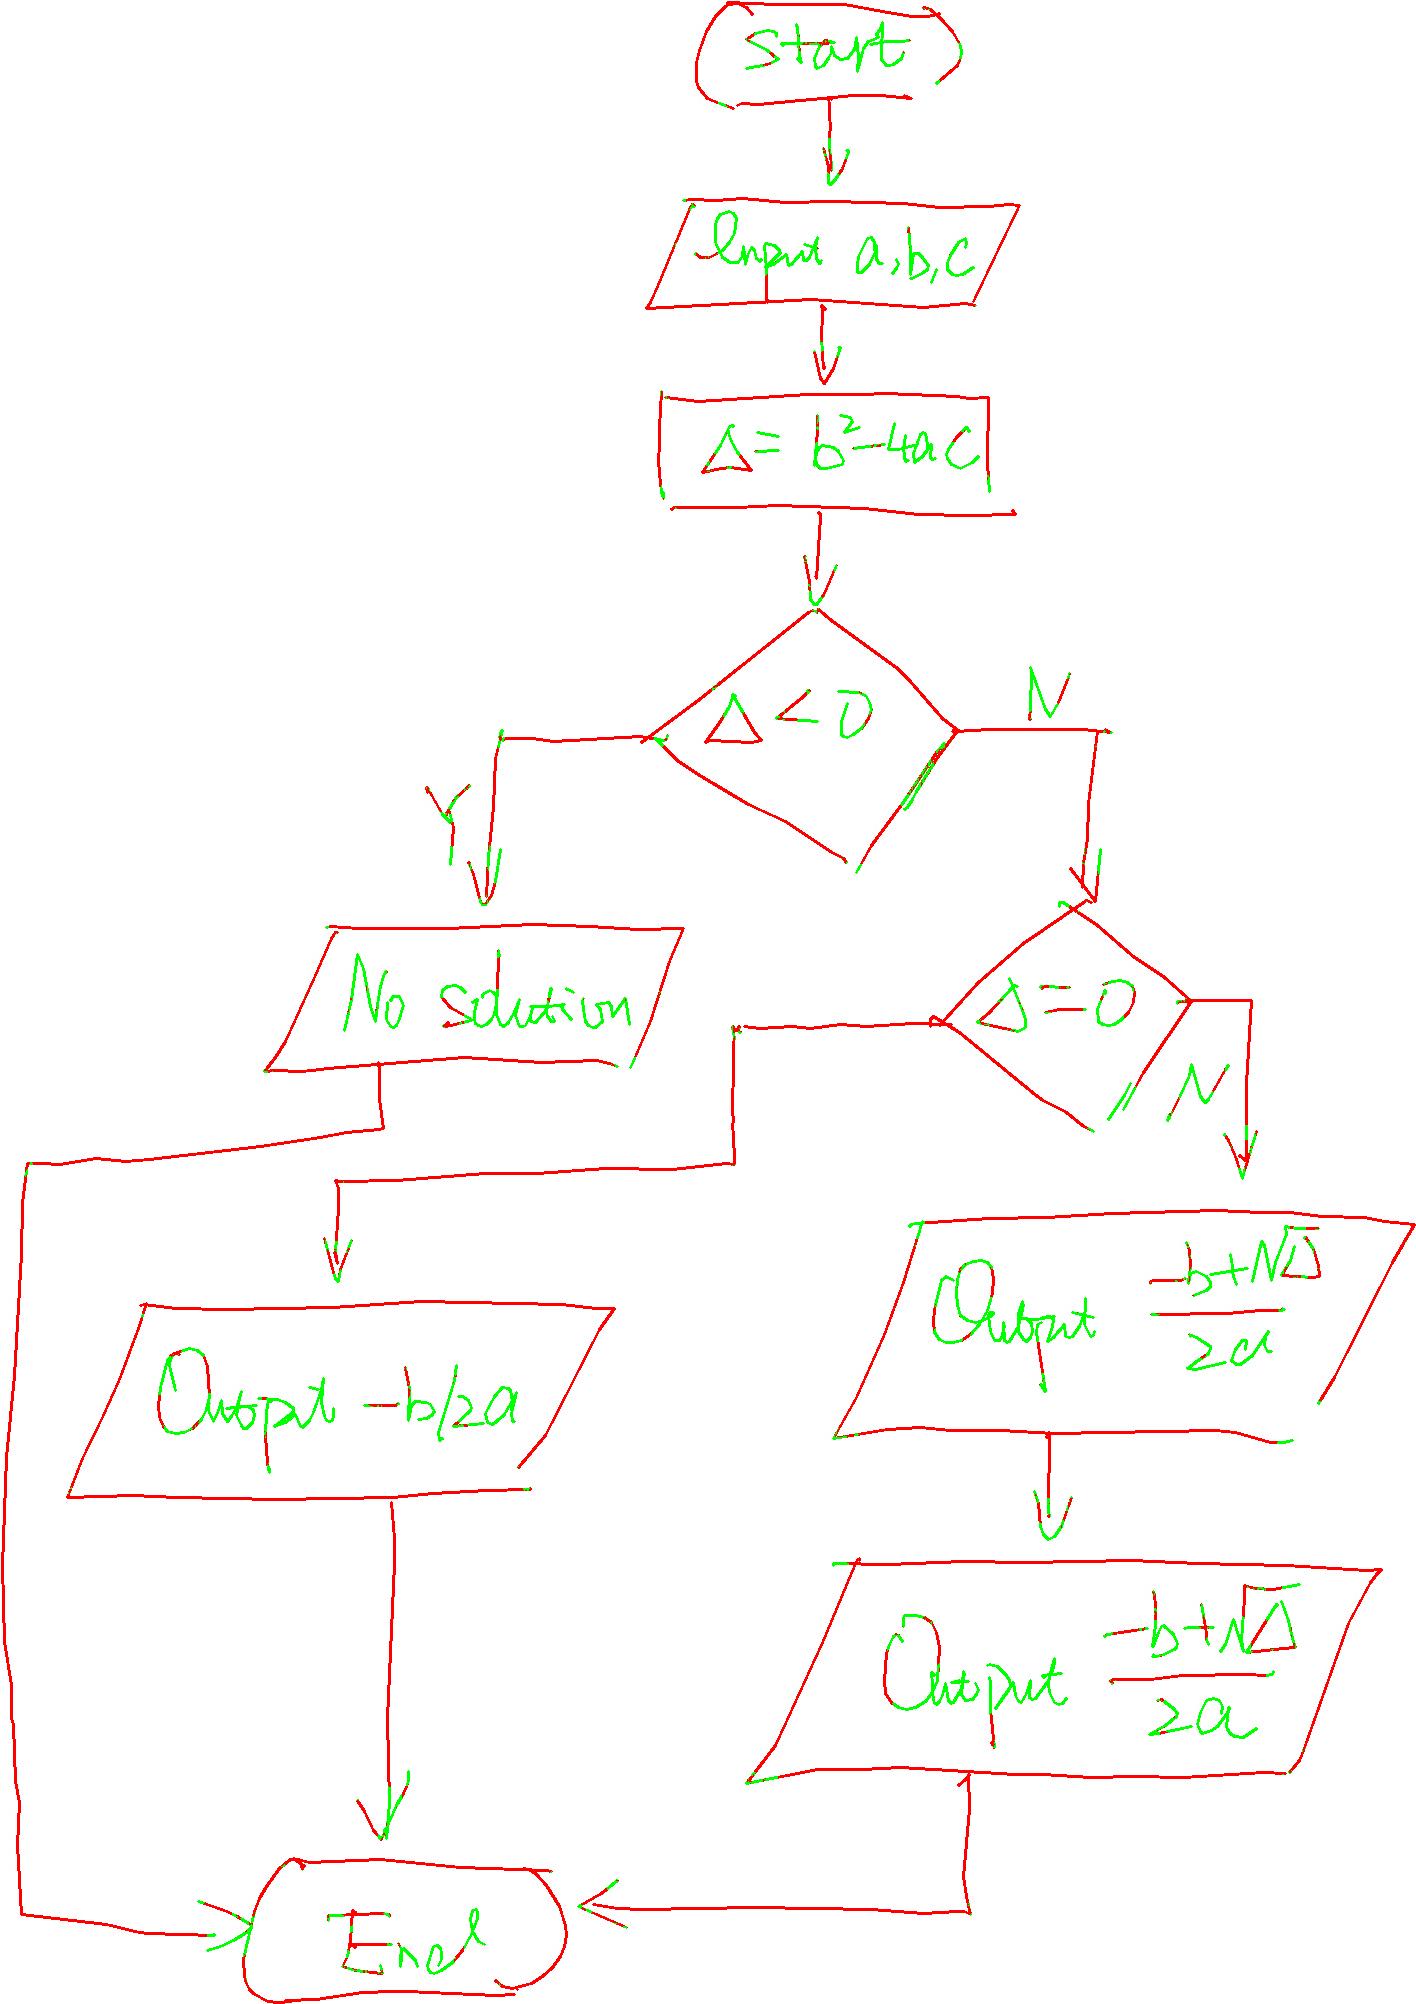 Start
Input a,b,c
Δ = b²-4ac
Δ < 0
N
Y
No solution
Δ = 0
N
Output -b+√Δ
2a
Output -b/2a
Output -b+√Δ
2a
End